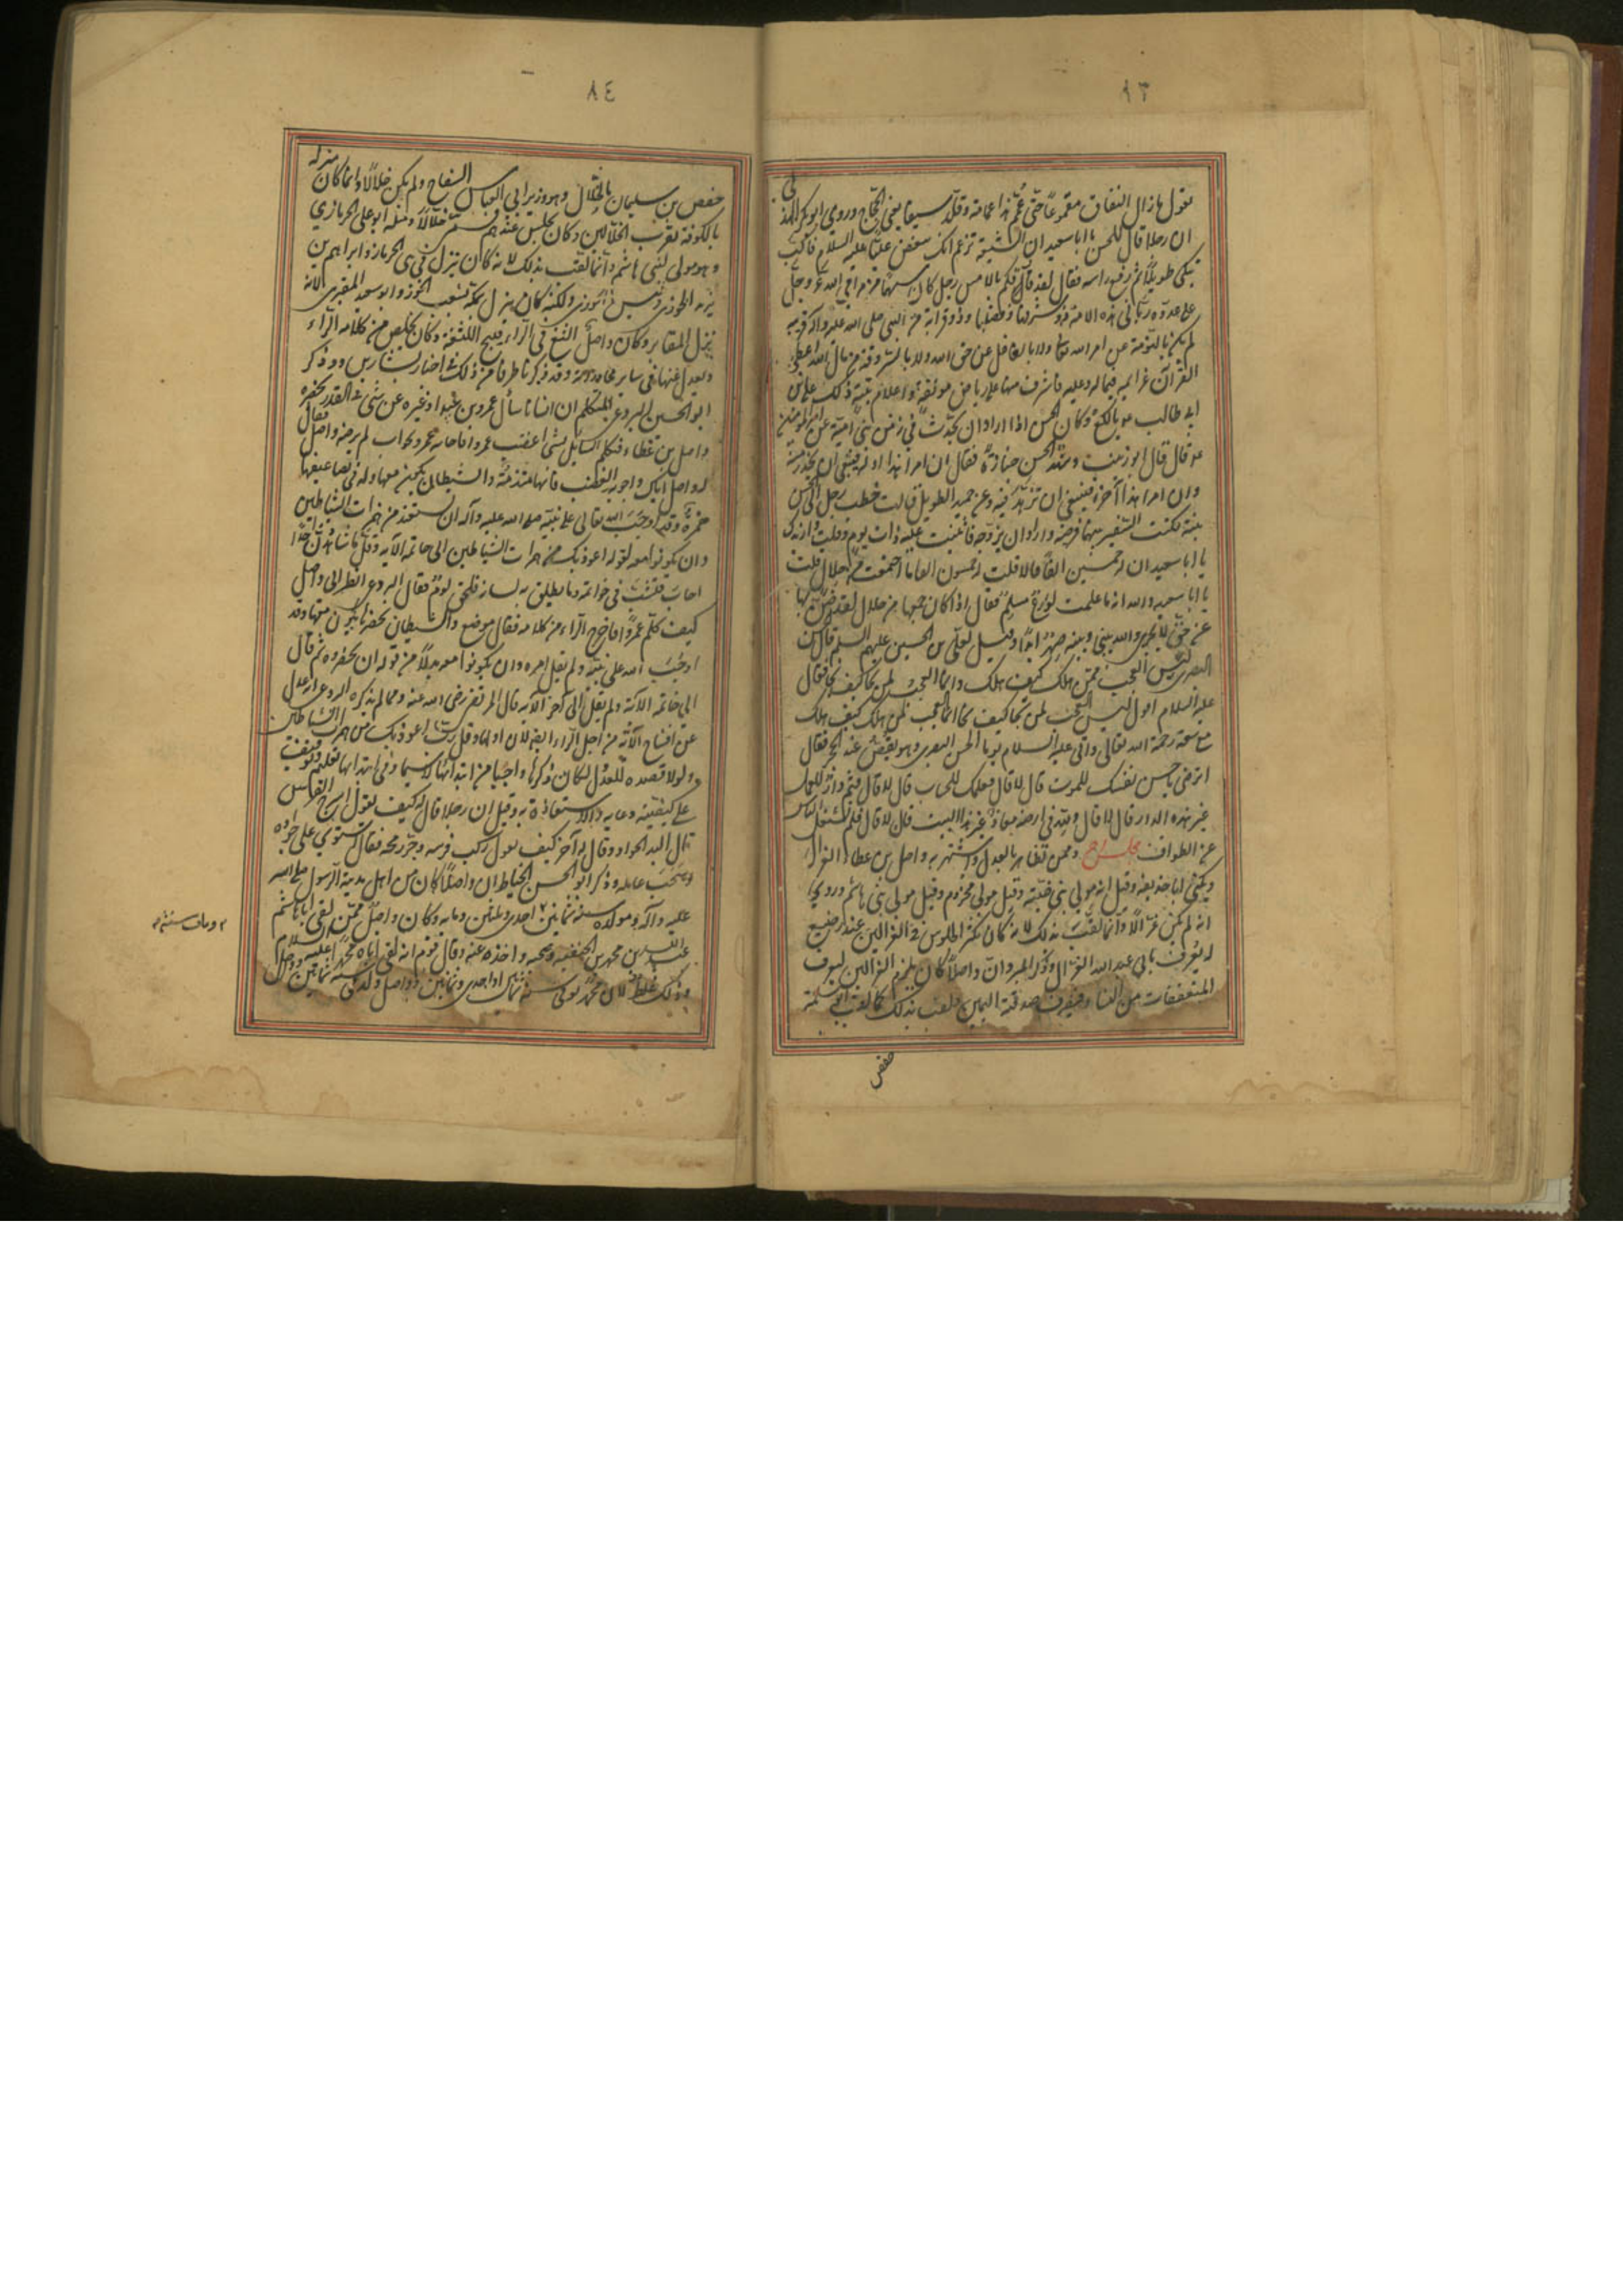 ٨٣
يقول ما زال النفاق مقموعًا حتى عُمّم هذا عمامة وقُلّد سيفا يعني الحجّاج وروى ابو بكر الهذلي
ان رجلا قال للحسن يا ابا سعيد ان الشيعة تزعم انك تبغض عليًّا عليه السلام فاكبّ
يبكي طويلًا ثم رفع راسه فقال لقد فارقكم بالامس رجل كان سهمًا من مرامي الله عز وجل
على عدوه ربّاني هذه الامة ذو شرفها وفضلها وذو قرابة من النبي صلى الله عليه واله قريبه
لم يكن بالنؤمة عن امر الله ولا بالغافل عن حق الله ولا بالسروقة من مال الله اعطى
القرآن عزايمه فيما له وعليه فاشرف منها على رياض مونقة واعلام بينة ذلك علي بن
ابي طالب يا لكع وكان الحسن اذا اراد ان يحدّث في زمن بني امية عن امير المؤمنين
قال قال ابو زينب وشهد الحسن جنازة فقال ان امرا هذا اوله فينبغي ان يحذر منه
وان امرا هذا آخره فينبغي ان يزهد فيه وعن حميد الطويل قالت خطب رجل الى الحسن
بنته فكنت السفير بينهما فرضيه واراد ان يزوّجه فاثنيت عليه ذات يوم وقلت وازيدك
يا ابا سعيد ان له خمسين الفًا قال له قلت له خمسون الفا ما اجتمعت من حلال قلت
يا ابا سعيد والله انه ما علمت لورعٌ مسلم فقال اذا كان جمعها من حلال لقد ضنّ بها
عن حقٍّ لا يجري والله بيني وبينه صهر ابدًا وقيل لعلي بن الحسين عليهم السلم قال الحسن
البصري ليس العجب ممّن هلك كيف هلك وانما العجب لمن نجا كيف نجا فقال
عليه السلام اقول ليس العجب لمن نجا كيف نجا انما العجب لمن هلك كيف هلك
مع سعة رحمة الله تعالى واتى عليه السلام يوما الحسن البصري وهو يقصّ عند الحجر فقال
اترضى يا حسن نفسك للموت قال لا قال فعملك للحساب قال لا قال فثمّ دار للعمل
غير هذه الدار قال لا قال ولله في ارضه معاذ غير هذا البيت قال لا قال فلم تشغل الناس
عن الطواف مجلس اخر وممن تظاهر بالعدل واشتهر به واصل بن عطا الغزال
ويكنى ابا حذيفة وقيل انه مولى بني ضبّة وقيل مولى مخزوم وقيل مولى بني هاشم وروي
انه لم يكن غزّالًا وانما لقّب بذلك لانه كان يكثر الجلوس في الغزالين عند رضيع
له يعرف بابي عبد الله الغزال وذكر المبرد ان واصلًا كان يلزم الغزالين ليعرف
المتعففات من النساء فيصرف صدقته اليهن فلقب بذلك كما لقب ابو سلمة
حفص
٨٤
حفص بن سليمان بالخلّال وهو وزير ابي العباس السفاح ولم يكن خلالًا وانما كان منزله
بالكوفة بقرب الخلّالين وكان يجلس عندهم فسمّي خلّالًا ومثله ابو علي الحرمازي
وهو مولى لبني هاشم وانما لقّب بذلك لانه كان ينزل في بني الحرماز وابراهيم بن
يزيد الخوزي وليس بخوزي ولكنه كان ينزل بمكة بشعب الخوز وابو سعيد المقبري لانه
نزل المقابر وكان واصل الثغ في الراء قبيح اللثغة وكان يخلّص من كلامه الراء
ويعدل عنها في ساير محاوراته وقد ذكرنا طرفا من ذلك في اخبار بشار بن برد وذكر
ابو الحسين البردعي المتكلم ان انسانا سأل عمرو بن عبيد او غيره عن شيء في القدر بحضرة
واصل بن عطاء فتكلم السايل بشيء اغضب عمرو فاجابه عمرو بجواب لم يرضه واصل فقال
له واصل اياك واجوبة الغضب فانها مندمة والشيطان يكون معها وله في تضاعيفها
همزة وقد اوجب الله تعالى على نبيه صلى الله عليه وآله ان يستعيذ من همزات الشياطين
وان يكونوا معه بقوله اعوذ بك من همزات الشياطين الى خاتمة الآية وقلّ ما شاهدت احدًا
اجاب فتثبّت في جوابه وما يطلق به لسانه فلحقه لوم فقال البردعي انظر الى واصل
كيف كلّم عمروًا فاخرج الراء من كلامه فقال موضع والشيطان يحضرها يكون معها وقد
اوجب الله على نبيه ولم يقل امره وان يكونوا معه بدلًا من قوله ان يحضروه ثم قال
الى خاتمة الآية ولم يقل الى آخر الآية قال المرتضى رضي الله عنه ومما لم يذكره البردعي انه عدل
عن افتتاح الآية من اجل الراء ايضا لان اولها وقل ربّ اعوذ بك من همزات الشياطين
ولولا قصده للعدول لكان ذكرها واجبًا من ابتدائها لا سيما وفي ابتدائها تعليم وتوقيف
على كيفيّة دعايه والاستعاذة به وقيل ان رجلا قال له كيف تقول اسرج الفرس
قال البد الجواد وقال له آخر كيف تقول ركب فرسه وجرّ رمحه فقال استوى على جواده
وسحب عامله وذكر ابو الحسن الخياط ان واصلًا كان من اهل مدينة الرسول صلى الله
عليه وآله ومولده سنة ثمانين احدى وثلثين وماية وكان واصل ممّن لقي ابا هاشم
عبد الله بن محمد بن الحنفية وصحبه واخذ عنه وقال قوم انه لقي اباه محمدًا عليه السلام
وذلك غلط لان محمدًا توفي سنة ثمانين او احدى وثمانين وواصل ولد في سنة ثمانين وواصل
ومات سنة